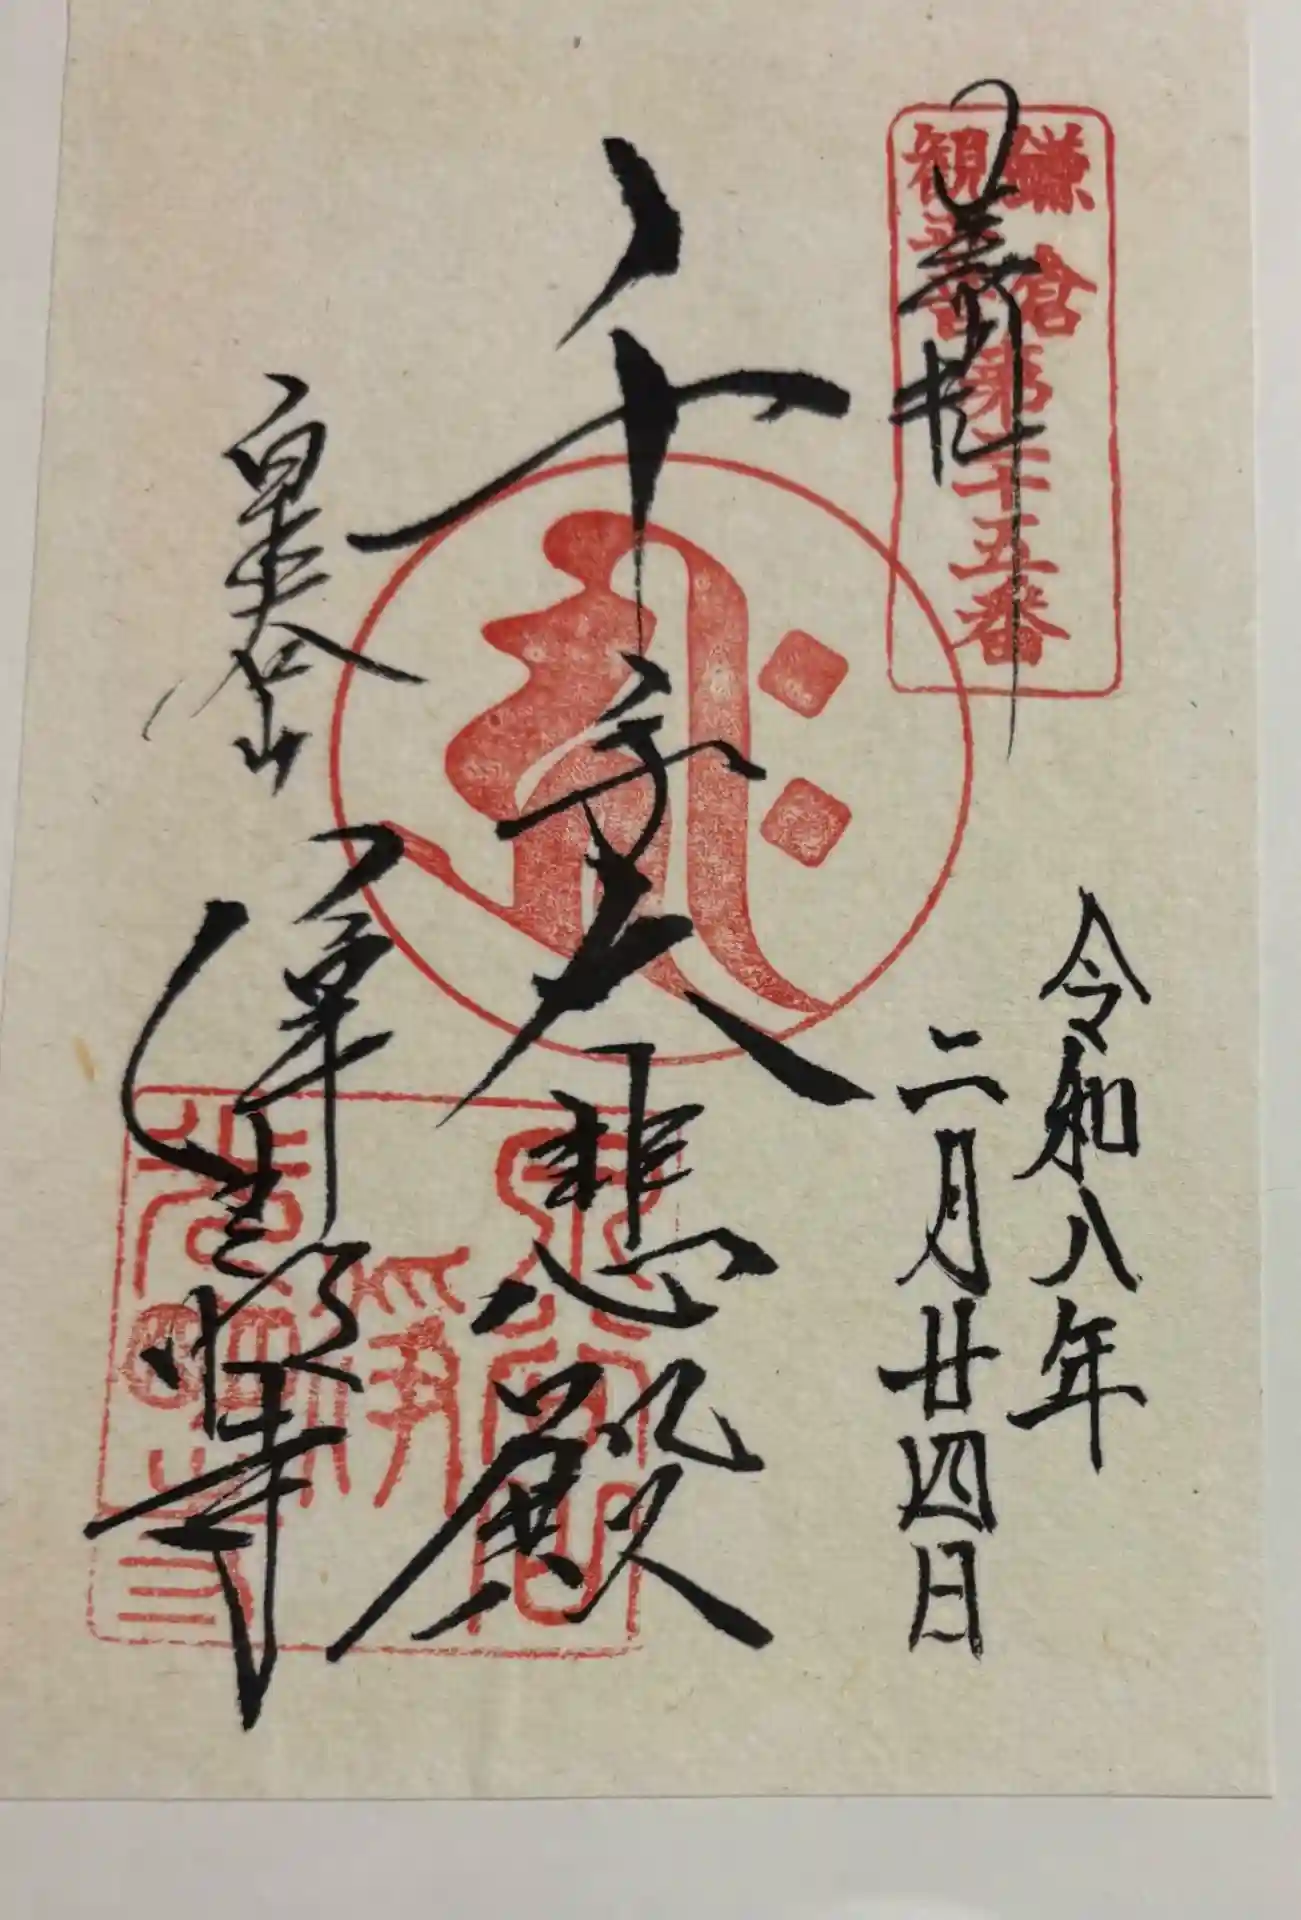 鎌倉
観音
第二十五番
奉拝
令和八年
二月廿四日
千手大悲殿
泉谷山
淨光明寺